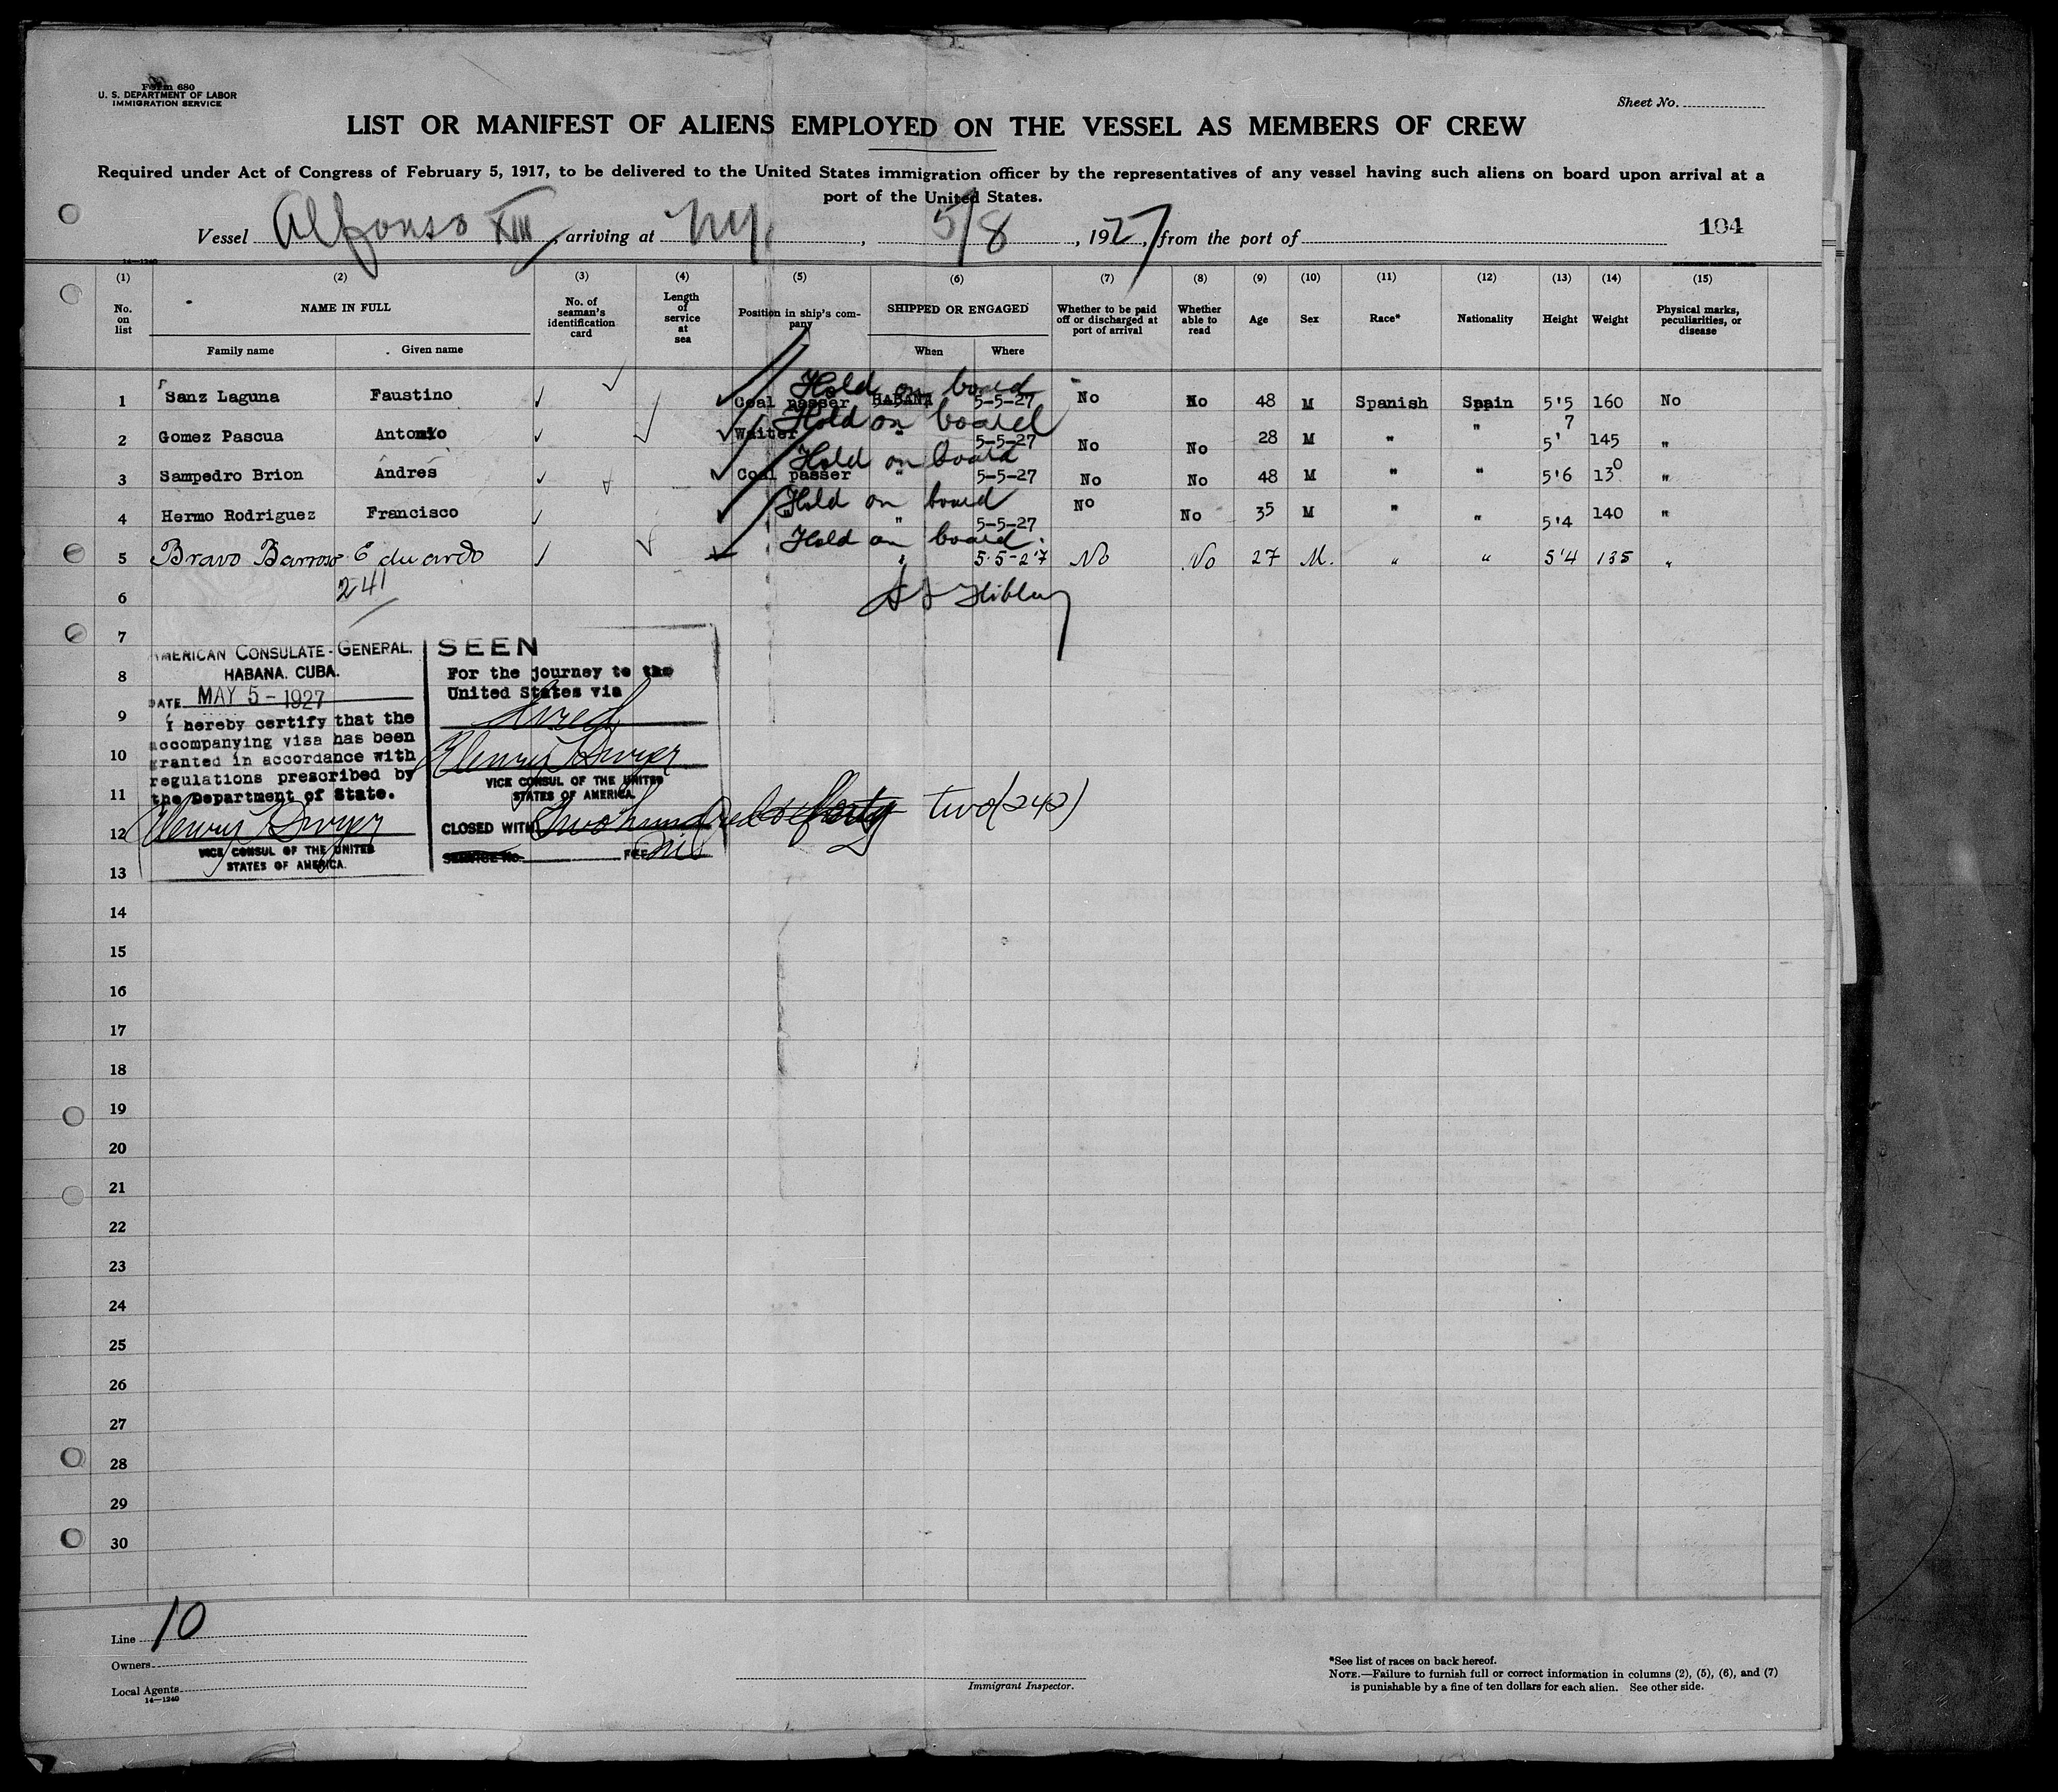 Form 680
U. S. DEPARTMENT OF LABOR
IMMIGRATION SERVICE
Sheet No.
LIST OR MANIFEST OF ALIENS EMPLOYED ON THE VESSEL AS MEMBERS OF CREW
Required under Act of Congress of February 5, 1917, to be delivered to the United States immigration officer by the representatives of any vessel having such aliens on board upon arrival at a
port of the United States.
Vessel Alfonso XIII, arriving at N.Y., 5/8, 1927, from the port of 104
14—1240
(1) (2) (3) (4) (5) (6) (7) (8) (9) (10) (11) (12) (13) (14) (15)
No. on list NAME IN FULL No. of seaman's identification card Length of service at sea Position in ship's company SHIPPED OR ENGAGED Whether to be paid off or discharged at port of arrival Whether able to read Age Sex Race* Nationality Height Weight Physical marks, peculiarities, or disease
Family name Given name When Where
Hold on board
1 Sanz Laguna Faustino ✓ Coal passer HABANA 5-5-27 No No 48 M Spanish Spain 5'5 160 No
Hold on board
2 Gomez Pascua Antonio ✓ Waiter " 5-5-27 No No 28 M " " 5'7 145 "
Hold on board
3 Sampedro Brion Andres ✓ Coal passer " 5-5-27 No No 48 M " " 5'6 130 "
Hold on board
4 Hermo Rodriguez Francisco ✓ " " 5-5-27 No No 35 M " " 5'4 140 "
Hold on board.
5 Bravo Barroso Eduardo ✓ " 5-5-27 No No 27 M. " " 5'4 135 "
241
6
7
8
9
10
11
12
13
14
15
16
17
18
19
20
21
22
23
24
25
26
27
28
29
30
AMERICAN CONSULATE-GENERAL.
HABANA. CUBA.
DATE MAY 5-1927
I hereby certify that the
accompanying visa has been
granted in accordance with
regulations prescribed by
the Department of State.
Henry Dwyer
VICE CONSUL OF THE UNITED
STATES OF AMERICA.
SEEN
For the journey to the
United States via
Direct
Henry Dwyer
VICE CONSUL OF THE UNITED
STATES OF AMERICA
CLOSED WITH Two hundred & forty two (242)
SERVICE No. FEE Nil
Line 10
Owners
Local Agents
14—1240
Immigrant Inspector.
*See list of races on back hereof.
NOTE.—Failure to furnish full or correct information in columns (2), (5), (6), and (7)
is punishable by a fine of ten dollars for each alien. See other side.